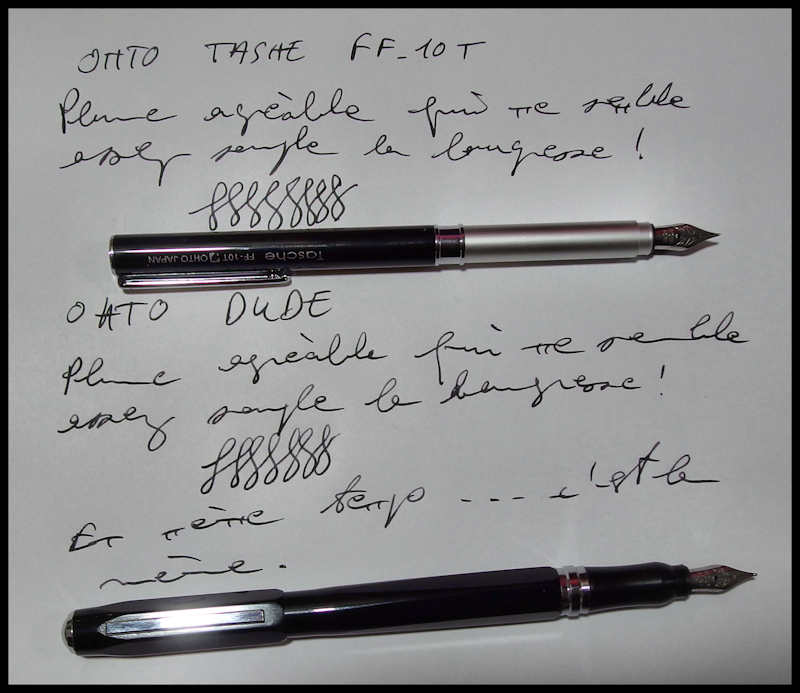 OHTO TASHE FF-10T
Plume agréable qui me semble
assez souple la bougresse !
Tasche FF-10T OHTO JAPAN
OHTO DUDE
Plume agréable qui me semble
assez souple la bougresse !
En même temps .... c'est la
même.